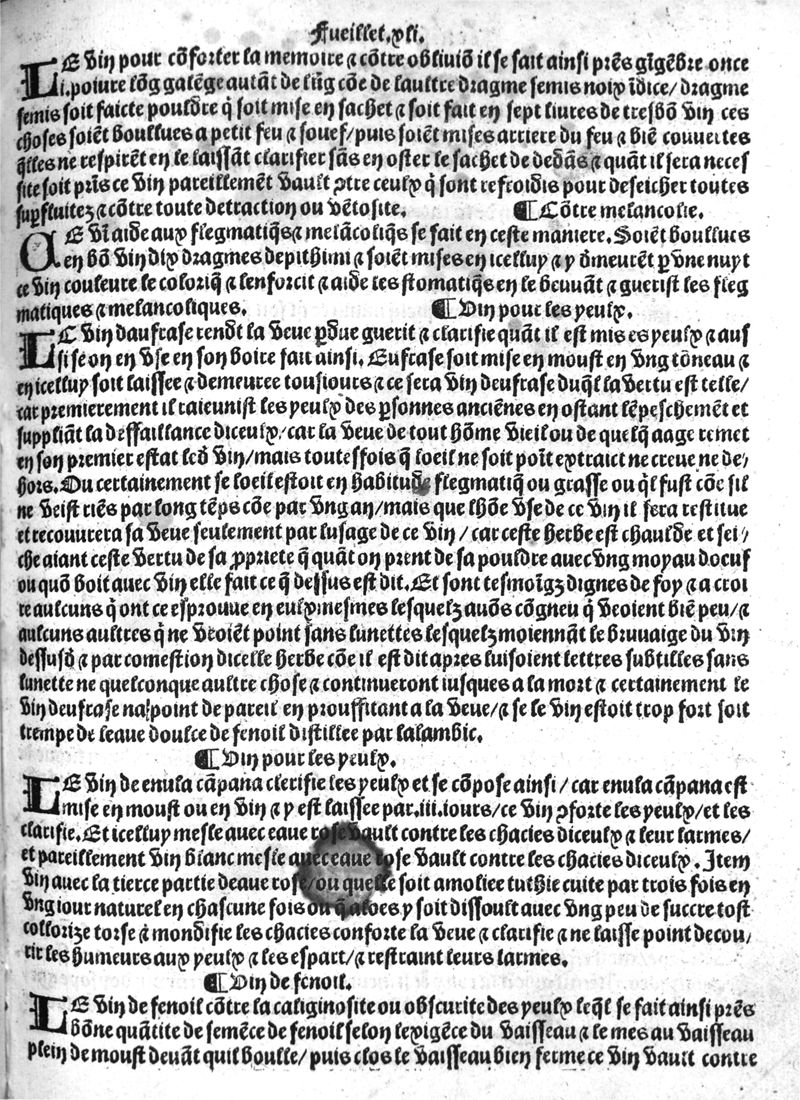 Fueillet.xli.
LE vin pour cõforter la memoire ⁊ cõtre obliuiõ il se fait ainsi prẽs gĩgẽbre once
i.poiure lõg galẽge autãt de lũg cõe de laultre dragme semis noix ĩdice/ dragme
semis soit faicte pouldre q̃ soit mise en sachet ⁊ soit fait en sept liures de tresbõ vin ces
choses soiẽt boullues a petit feu ⁊ souef/ puis soiẽt mises arriere du feu ⁊ biẽ couuertes
q̃lles ne respirẽt en le laissãt clarifier sãs en oster le sachet de dedãs ⁊ quãt il sera neces
site soit prĩs ce vin pareillemẽt vault ꝯtre ceulx q̃ sont refroidis pour deseicher toutes
suꝑfluitez ⁊ cõtre toute detraction ou vẽtosite. ¶ Cõtre melancolie.
CE vĩ aide aux flegmatiq̃s ⁊ melãcoliq̃s se fait en ceste maniere. Soiẽt boullues
en bõ vin dix dragmes depithimi ⁊ soiẽt mises en icelluy ⁊ y ꝺmeurẽt ꝑ vne nuyt
ce vin couleure le coloriq̃ ⁊ lenforcit ⁊ aide les stomatiq̃s en le beuuãt ⁊ guerist les fleg
matiques ⁊ melancoliques. ¶ Vin pour les yeulx.
LE vin daufrase rendt la veue ꝑdue guerit ⁊ clarifie quãt il est mis es yeulx ⁊ aus
si se on en vse en son boire fait ainsi. Eufrase soit mise en moust en vng tõneau ⁊
en icelluy soit laissee ⁊ demeuree tousiours ⁊ ce sera vin deufrase duq̃l la vertu est telle/
car premierement il raieunist les yeulx des ꝑsonnes anciẽnes en ostant lẽpeschemẽt et
suppliãt la deffaillance diceulx/ car la veue de tout hõme vieil ou de quelq̃ aage remet
en son premier estat led̃ vin/ mais toutesfois q̃ loeil ne soit poĩt extraict ne creue ne de/
hors. Ou certainement se loeil estoit en habitude flegmatiq̃ ou grasse ou q̃l fust cõe sil
ne veist riẽs par long tẽps cõe par vng an/ mais que lhõe vse de ce vin il sera restitue
et recouurera sa veue seulement par lusage de ce vin/ car ceste herbe est chaulde et sei/
che aiant ceste vertu de sa ꝓpriete q̃ quãt on prent de sa pouldre auec vng moyau doeuf
ou quõ boit auec vin elle fait ce q̃ dessus est dit. Et sont tesmoĩgz dignes de foy ⁊ a croi
re aulcuns q̃ ont ce esprouue en eulx mesmes lesquelz auõs cõgneu q̃ veoient biẽ peu/ ⁊
aulcuns aultres q̃ ne veoiẽt point sans lunettes lesquelz moiennãt le bruuaige du vin
dessusd̃ ⁊ par comestion dicelle herbe cõe il est dit apres luisoient lettres subtilles sans
lunette ne quelconque aultre chose ⁊ continueront iusques a la mort ⁊ certainement le
vin deufrase na point de pareil en prouffitant a la veue/ ⁊ se le vin estoit trop fort soit
trempe de leaue doulce de fenoil distillee par lalambic.
¶ Vin pour les yeulx.
LE vin de enula cãpana clerifie les yeulx et se cõpose ainsi/ car enula cãpana est
mise en moust ou en vin ⁊ y est laissee par.iii.iours/ ce vin ꝯforte les yeulx/ et les
clarifie. Et icelluy mesle auec eaue rose vault contre les chacies diceulx ⁊ leur larmes/
et pareillement vin blanc mesle auec eaue rose vault contre les chacies diceulx. Item
vin auec la tierce partie deaue rose/ ou quelle soit amoliee tuthie cuite par trois fois en
vng iour naturel en chascune fois ou q̃ aloes y soit dissoult auec vng peu de succre tost
collorize torse ⁊ mondifie les chacies conforte la veue ⁊ clarifie ⁊ ne laisse point decou/
rir les humeurs aux yeulx ⁊ les espart/ ⁊ restraint leurs larmes.
¶ Vin de fenoil.
LE vin de fenoil cõtre la caliginosite ou obscurite des yeulx leq̃l se fait ainsi prẽs
bõne quãtite de semẽce de fenoil selon lexigẽce du vaisseau ⁊ le mes au vaisseau
plein de moust deuãt quil boulle/ puis clos le vaisseau bien ferme ce vin vault contre